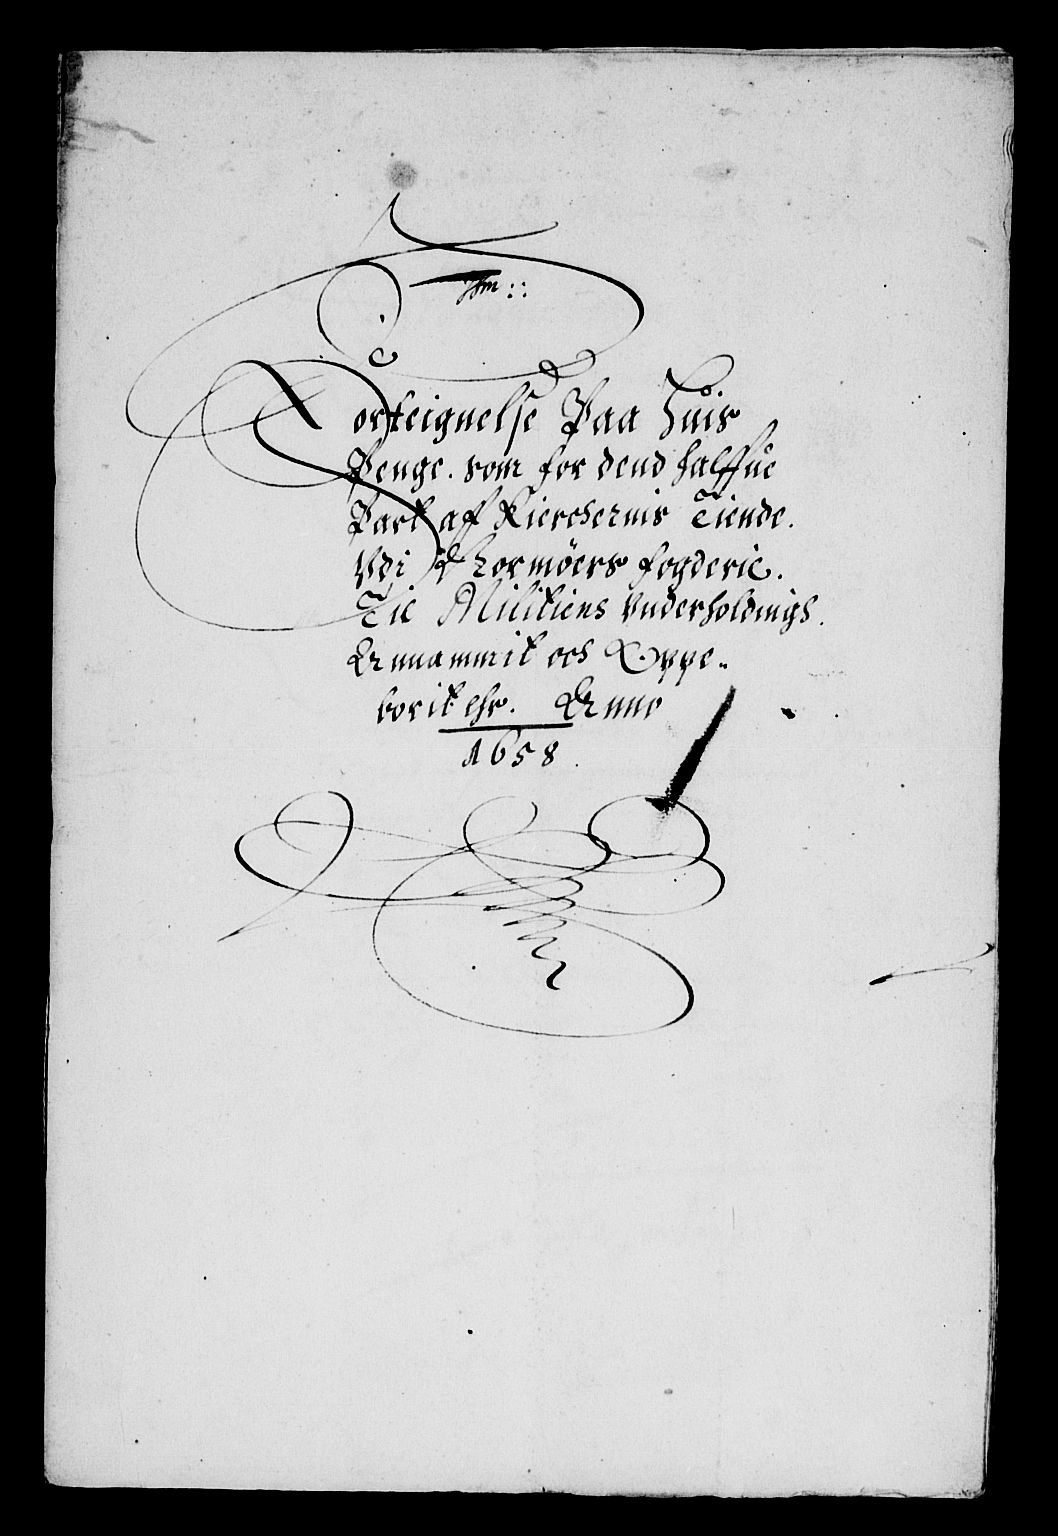 Forteignelse Paa Huis
Penge. som for dend halffue
Part aff Kierchernis Tiende.
Vdi Normøers fogderie.
Til Militiens Vnderholdnings
Annammit och Oppe-
borit ehr. Anno
1658.